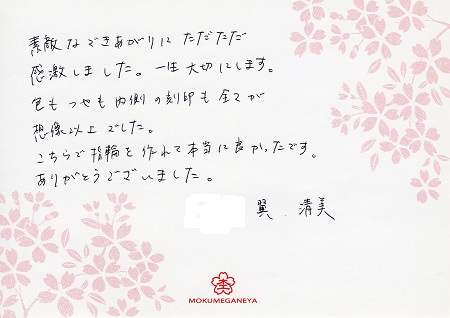 素敵なできあがりに ただただ
感激しました。一生大切にします。
色も つやも 内側の刻印も 全てが
想像以上でした。
こちらで指輪を作れて本当に良かったです。
ありがとうございました。
翼．清美
MOKUMEGANEYA